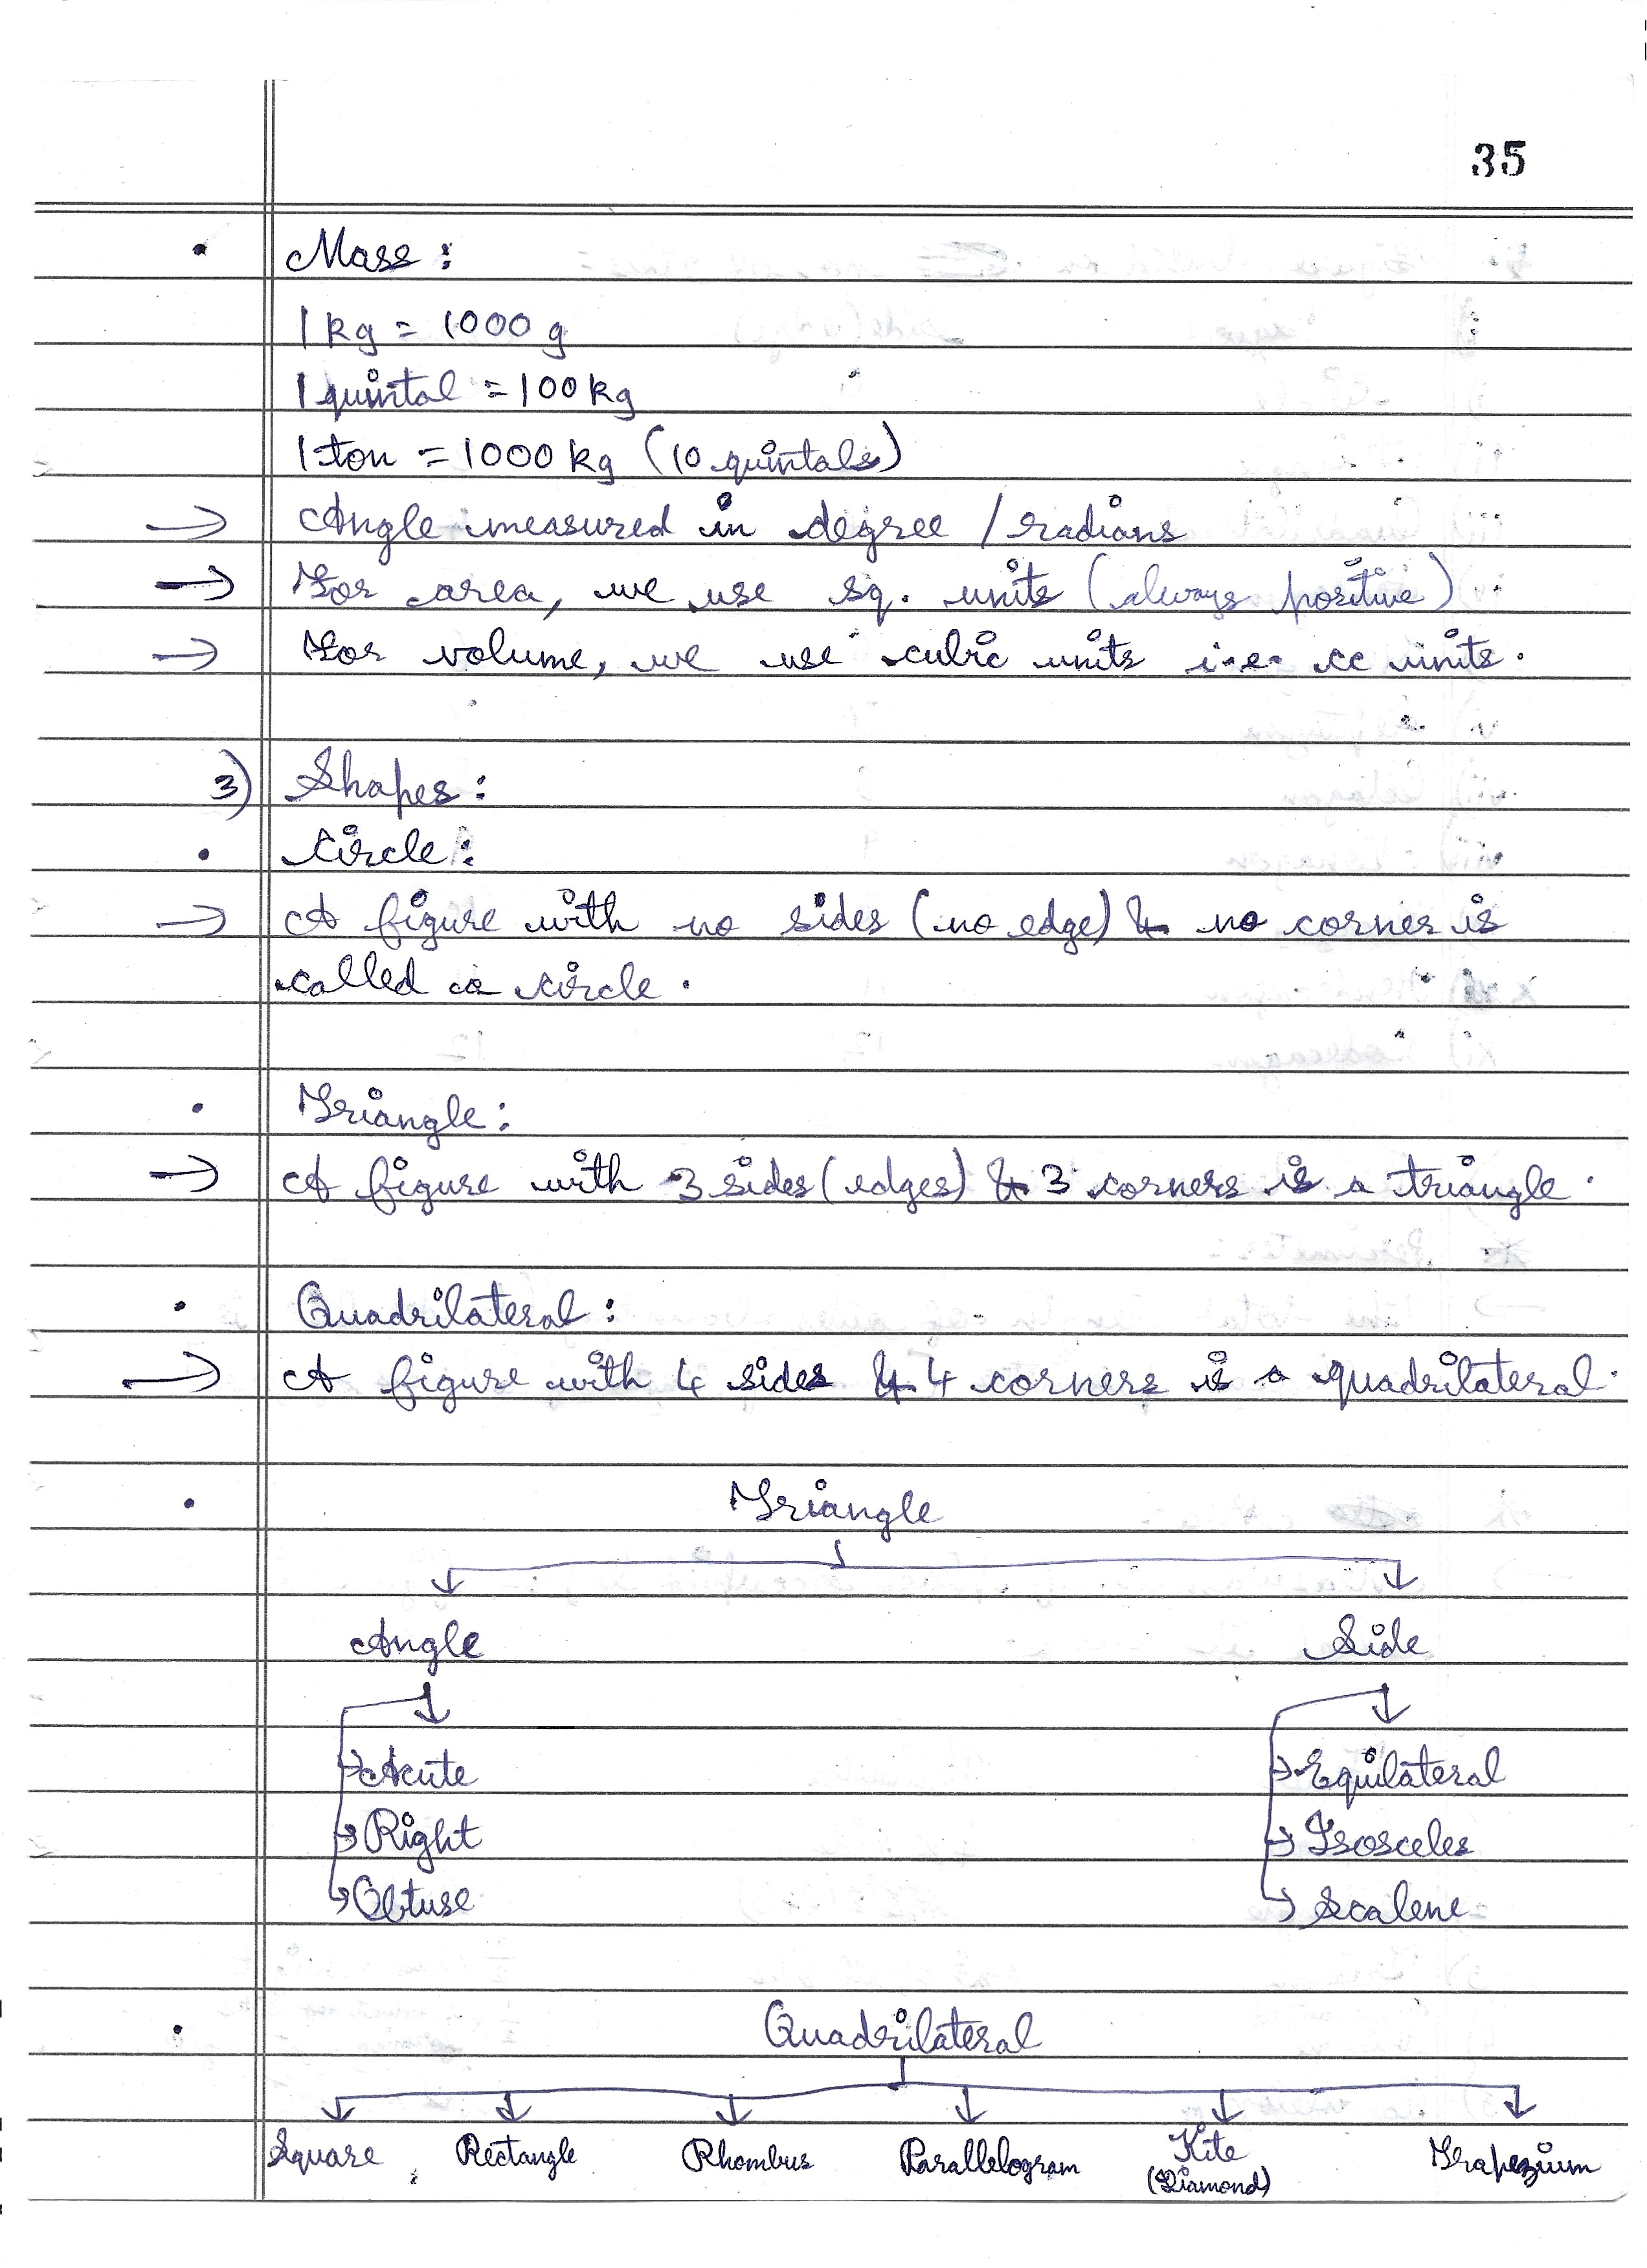 35
• Mass :
1 kg = 1000 g
1 quintal = 100 kg
1 ton = 1000 kg (10 quintals)
→ Angle measured in degree / radians
→ For area, we use sq. units (always positive)
→ For volume, we use cubic units i.e. cc units.
3) Shapes :
• Circle :
→ A figure with no sides (no edge) & no corner is
called a circle.
• Triangle :
→ A figure with 3 sides (edges) & 3 corners is a triangle.
• Quadrilateral :
→ A figure with 4 sides & 4 corners is a quadrilateral.
• Triangle
Angle Side
→ Acute → Equilateral
→ Right → Isosceles
→ Obtuse → Scalene
• Quadrilateral
Square Rectangle Rhombus Parallelogram Kite Trapezium
(Diamond)